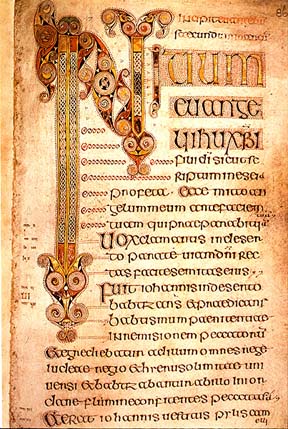 INITIUM
euange
lii ihu xpi
fili di sicut sc
riptum in esaia
profeta Ecce mitto an
gelum meum ante faciem
tuam qui praeparabit
Uox clamantis in deser
to parate uiam dni rec
tas facite semitas eius
Fuit iohannis in deserto
babtizans et praedicans
babtismum paenitentiae
in remissionem peccatorum
Et egrediebatur ad illum omnis
iudeae regio et
uersi et babtizabantur ab illo in ior
dane flumine confitentes peccata sua
Et erat iohannis uestitus pilis cam
eli